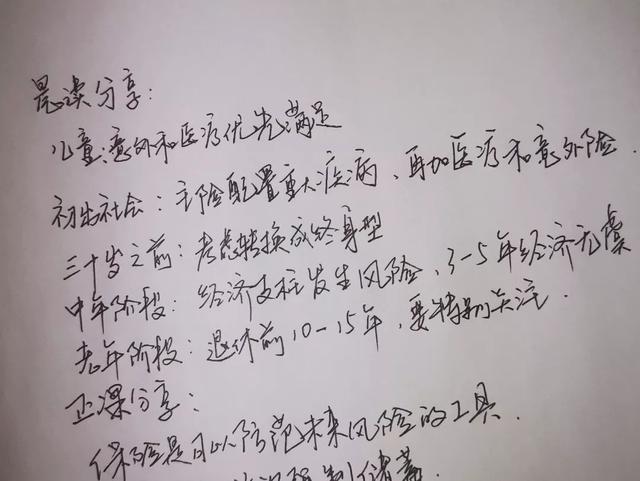 晨读分享：
儿童：意外和医疗优先满足
初出社会：主险配置重大疾病、再加医疗和意外险．
三十岁之前：考虑转换成终身型
中年阶段：经济支柱发生风险、3-5年经济无虞
老年阶段：退休前10-15年，要特别关注．
正课分享：
保险是可以防范未来风险的工具．
强制储蓄